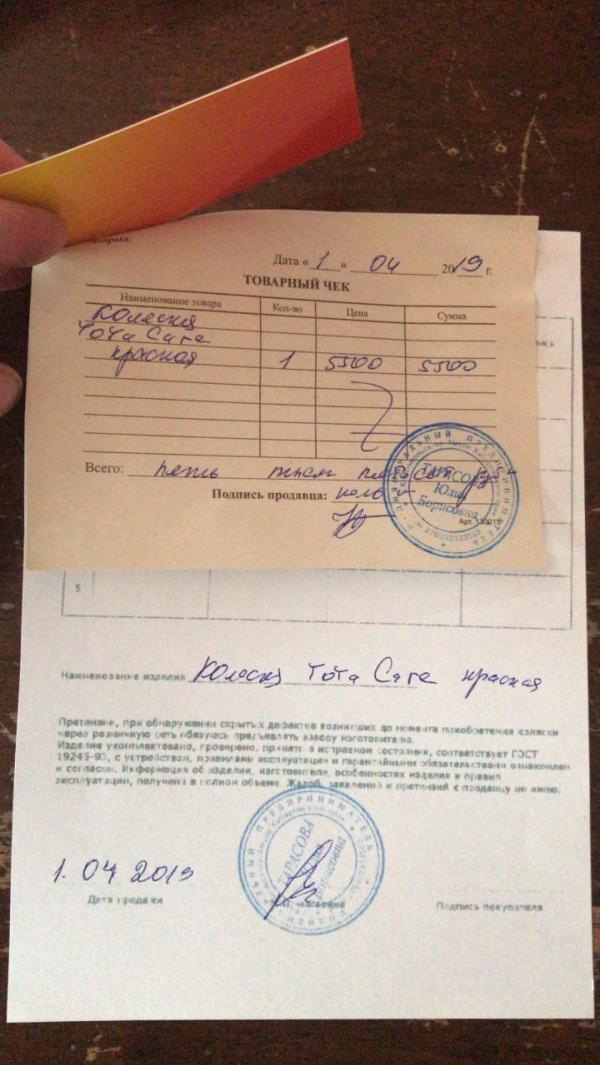 фирма:
Дата «1» 04 2019 г.
ТОВАРНЫЙ ЧЕК
Наименование товара Кол-во Цена Сумма
Коляска
Тота Саге
красная 1 5500 5500
Всего: пять тысяч пятьсот
Подпись продавца:
ТАРАСОВА
Юлия
Борисовна
Арт. 130015
5
Наименование изделия Коляска Тота Саге красная
Претензии, при обнаружении скрытых дефектов возникших до момента приобретения коляски
через розничную сеть обязуюсь предъявлять заводу изготовителю.
Изделие укомплектовано, проверено, принято в исправном состоянии, соответствует ГОСТ
19245-93, с устройством, правилами эксплуатации и гарантийными обязательствами ознакомлен
и согласен. Информация об изделии, изготовителе, особенностях изделия и правил
эксплуатации, получена в полном объеме. Жалоб, заявлений и претензий к продавцу не имею.
ИНДИВИДУАЛЬНЫЙ ПРЕДПРИНИМАТЕЛЬ
ТАРАСОВА
Юлия
Борисовна
1.04 2019
Дата продажи магазина Подпись покупателя